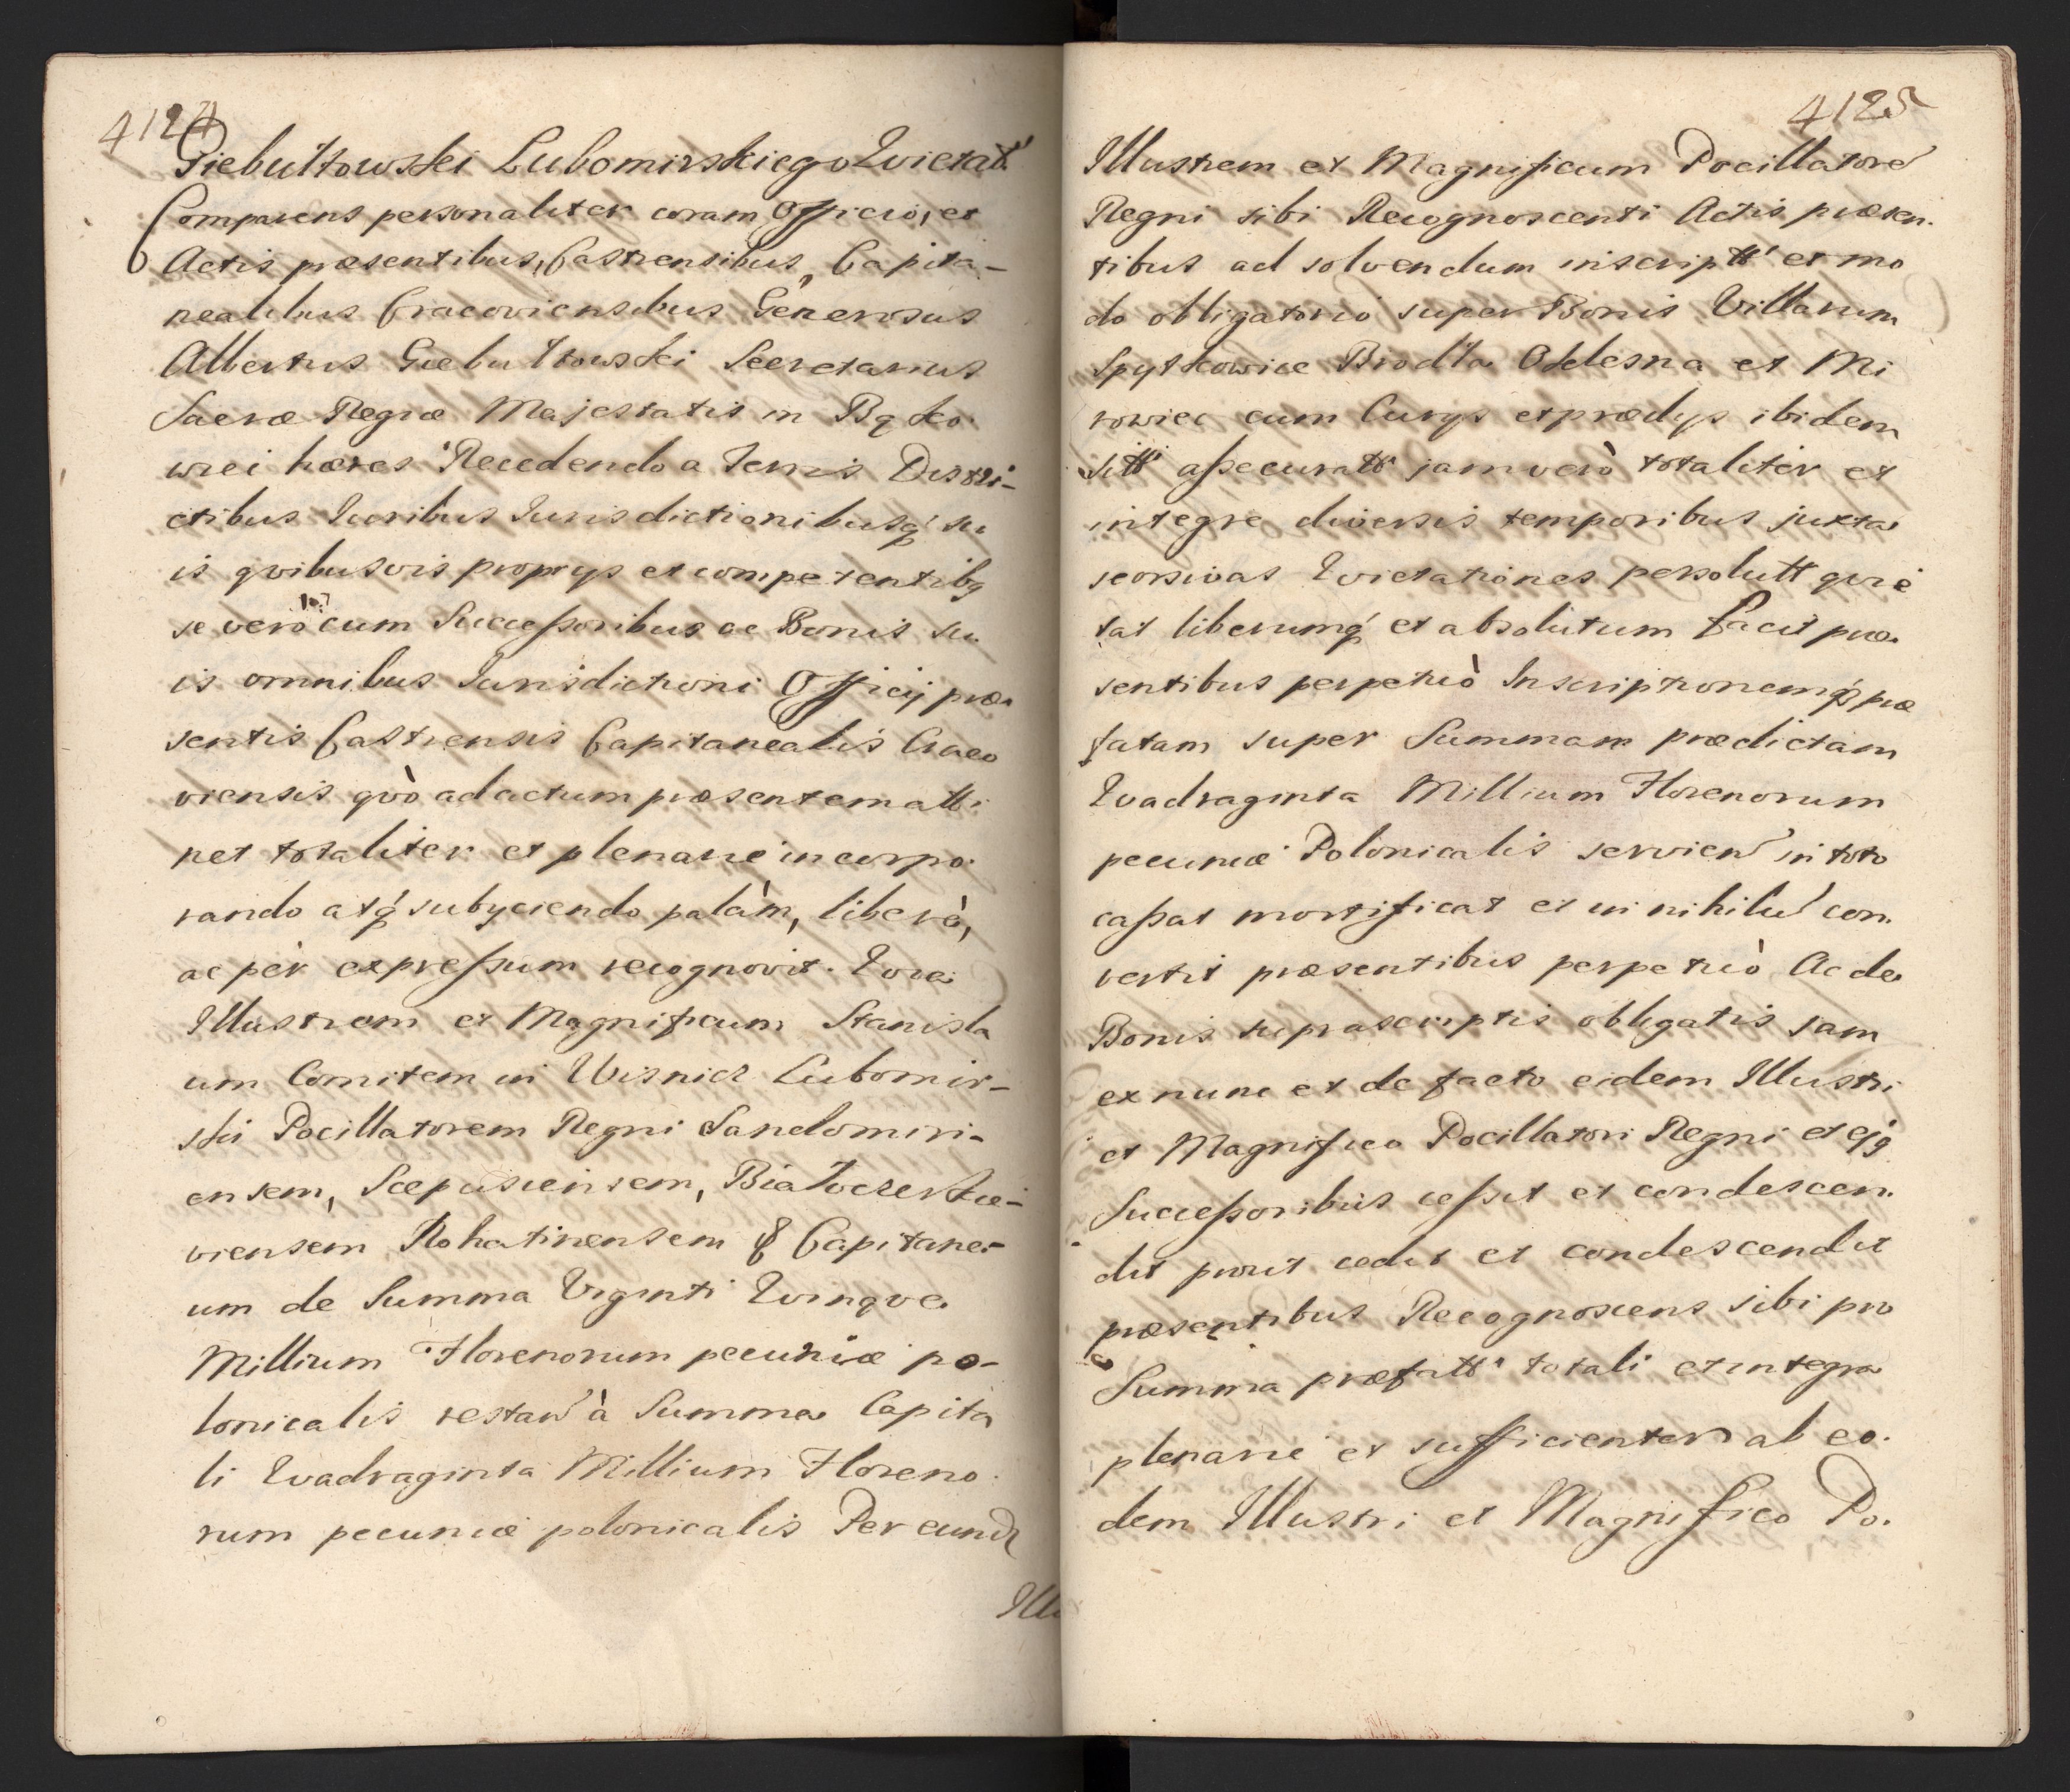 4124
Giebułtowski Lubomirskiego Qvietat
Comparens personaliter coram Officio, et
Actis præsentibus, Castrensibus, Capita-
nealibus Cracoviensibus Generosus
Albertus Giebułtowski Secretarius
Sacræ Regiæ Majestatis in Bęko
wiei hæres Recedendo a Terris Distri-
ctibus Iuribus Iurisdictionibusq' su
is qvibusvis proprys et competentibq
se vero cum Successoribus ac Bonis su
is omnibus Iurisdictioni Officij præ
sentis Castrensis Capitanealis Craco
viensis qvò ad actum præsentem atti
net totaliter et plenarie incorpo
rando atq' subyciendo palàm, liberè,
ac pèr expressum recognovit. Qvia
Illustrem et Magnificum Stanisla
um Comitem in Wisnicz Lubomir-
ski Pocillatorem Regni Sandomiri-
ensem, Scepusiensem, Białocerkie-
viensem Rohatinensem & Capitane-
um de Summa Viginti Qvinqve
Millium Florenorum pecuniæ po-
lonicalis restan à Summa Capita
li Qvadraginta Millium Floreno
rum pecuniæ polonicalis Per eund
Illu
4125
Illustrem et Magnificum Pocillatore
Regni sibi Recognoscenti Actis præsen
tibus ad solvendum inscriptt' et mo
do obligatorio super Bonis Villarum
Spytkowice Brodła Oklesna et Mi
rowiec cum Curys et prædys ibidem
sitt' assecuratt' jam verò totaliter et
integre diversis temporibus juxta
seorsivas Qvietationes persolutt qvie
tat liberumq' et absolutum facit præ
sentibus perpetuò Inscriptionemq' præ
fatam super Summam prædictam
Qvadraginta Millium Florenorum
pecuniæ Polonicalis servien in toto
cassat mortificat et in nihilu con
vertit præsentibus perpetuò Ac de
Bonis suprascriptis obligatis jam
ex nunc et de facto eidem Illustri
et Magnifico Pocillatori Regni et ejq
Successoribus cessit et condescen
dit prout cedit et condescendit
præsentibus Recognoscens sibi pro
Summa præfatt' totali et integra
plenarie et sufficienter ab eo
dem Illustri et Magnifico Po.